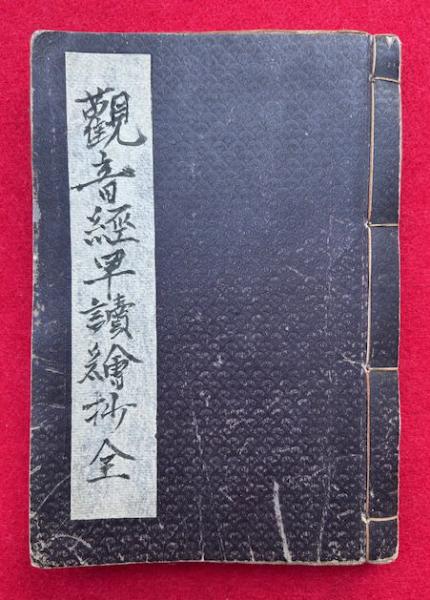 觀音經早讀繪抄全